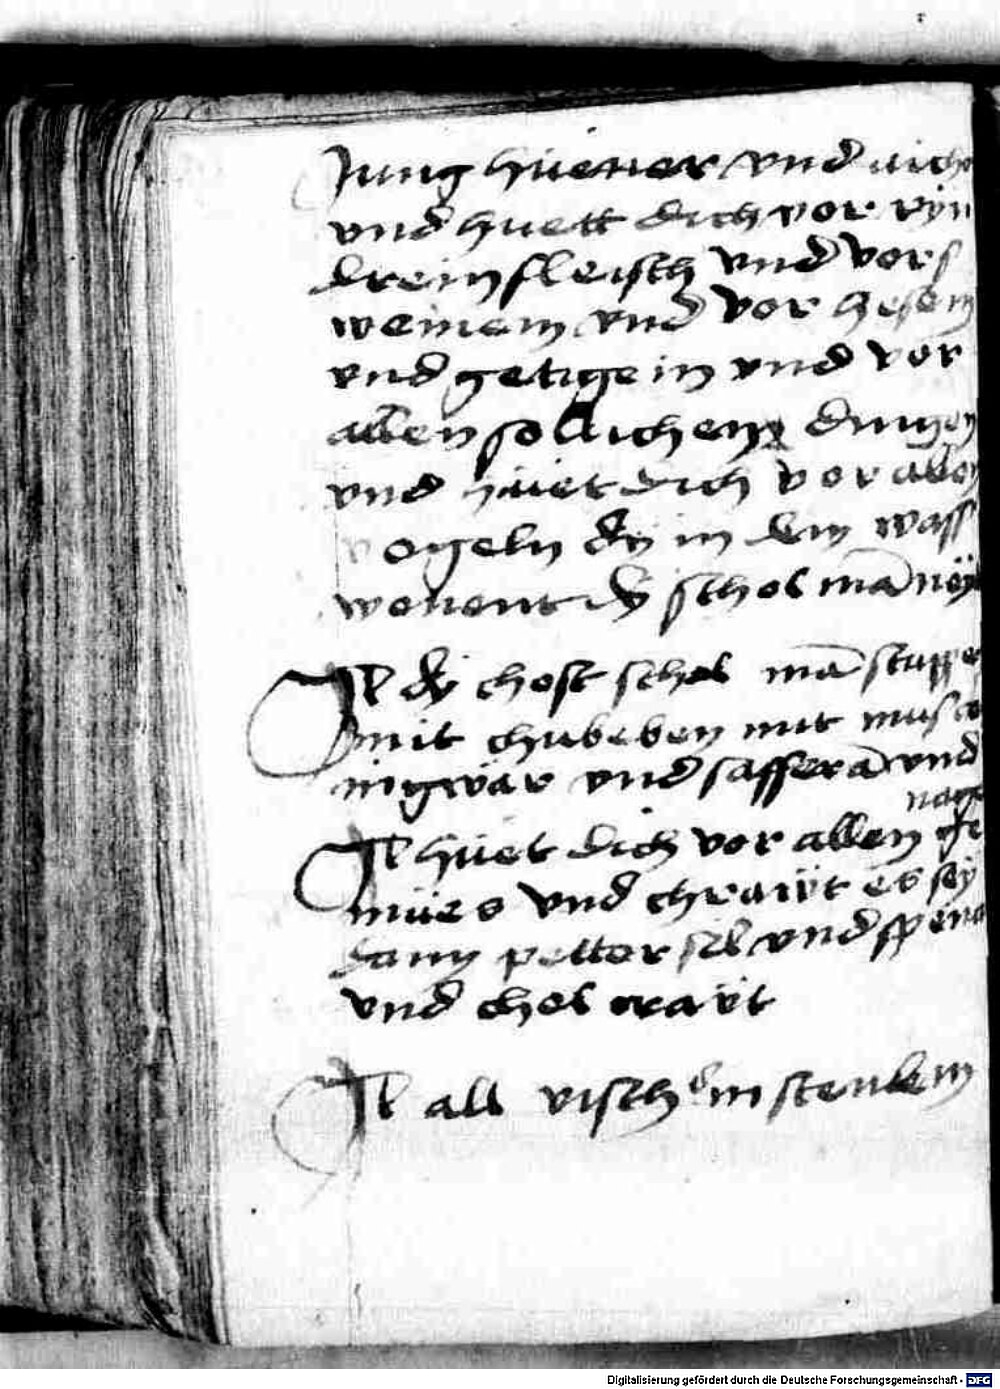 Jung hüener vnd
vnd huett dich vor ryn
dreinfleisch vnd vor s
weinem vnd vor hesem
vnd getigem vnd vor
allen sollichem dingen
vnd hüet dich vor allen
vogeln dÿ in dem wass
wonent dÿ schol mā
Jt dÿ chost schol mā stuppen
mit chubeben mit musca
ingwär vnd safferā vnd
nage
Jt hüet dich vor allen ge
müe s vnd chrawt es seÿ
dann pettersil vnd spena
vnd chol crawt
Jt all visch in